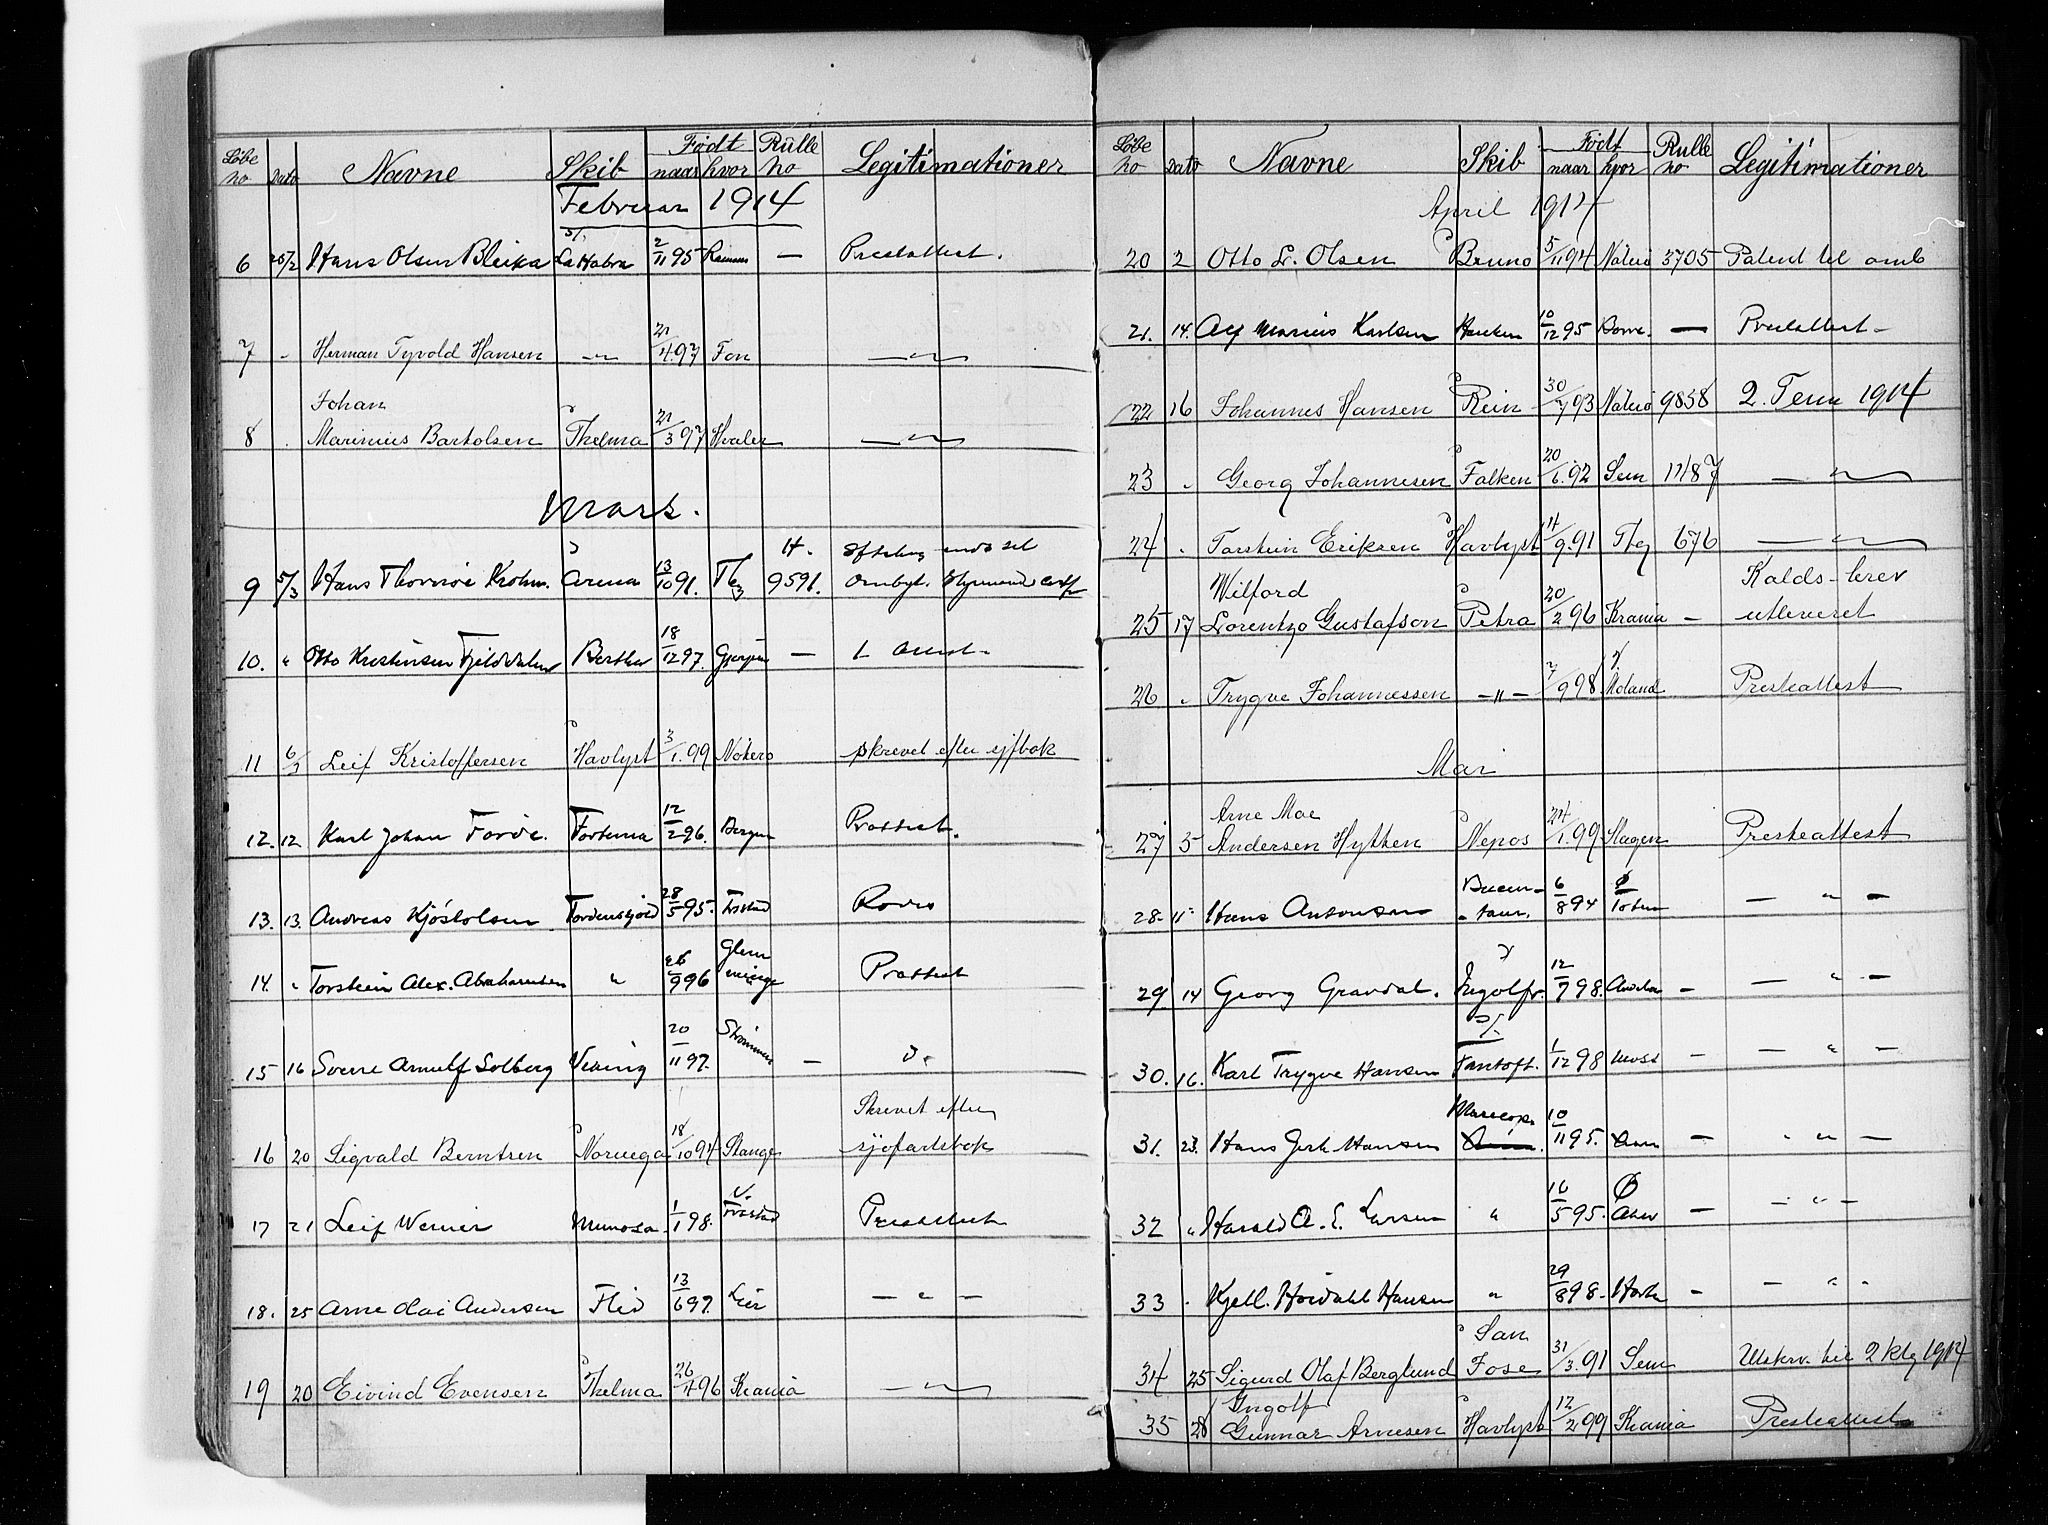 Løbe no Dato Navne Skib Født naar hvor Rulle no Legitimationer
Februar 1914
6 25/2 Hans Olsen Bleika La Habra 2/11 95 Ramnes — Presteattest.
7 " Herman Tyvold Hansen —"— 21/4 97 Fon —"—
Johan
8 . Marinius Bartolsen Thelma 21/3 97 Hvaler —"—
Mars.
9 5/3 Hans Thorvin Krohn. Arena 13/10 91. Tbg H. 9591.
10. " Otto Kristensen Fjelddalen Bertha 18/12 97. Gjerpen — 1 Attest.
11 6/3 Leif Kristoffersen Havlyst 3/1. 99 Nøtterø skrevet efter sjfbok
12. 12 Karl Johan Førde. Fortuna 12/2 96. Bergen Prattest.
13. 13. Andreas Kjøstolsen Tordenskjold 28/5 95. Fristad
14. " Torstein Alex. Abrahamsen " 26/9 96 Glemminge Prattest
15 16 Sverre Arnulf Solberg Viking 20/11 97. Strømmen — Do
16 20 Sigvald Berntsen Norvega 18/10 94 Stange Skrevet efter
sjøfartsbok
17 21 Leif Werner Mimosa 1/1 98. Presteattest
18. 25 Arne Olai Andersen Flid 13/6 97. Lier — " —
19 20 Eivind Evensen Thelma 26/4 96 Krania —"—
Løbe no Dato Navne Skib Født naar hvor Rulle no Legitimationer
April 1914
20 2 Otto L. Olsen Bruno 5/11 94 Nøterø 3705 Patent til omb
21. 14. Alf Marius Karlsen Hauken 10/12 95 Borre. — Presteattest
22 16 Johannes Hansen Rein 30/7 93 Nøterø 9858 2. Term 1914
23 " Georg Johannesen Falken 20/6. 92 Sem 1487 —"—
24 " Torstein Eriksen Havlyst 14/9. 91 Tbg 676 —"—
Wilford Kalds-brev
25 17 Lorentzo Gustafson Petra 20/2 96 Krania — utleveret
26 " Trygve Johannessen —"— 7/9 98 Presteattest
Mai
Arne Moe
27 5 Andersen Hytten Nepos 24/1. 99 Slagen Presteattest
28. 11 Hans Antonsen Bucen-taur. 6/8 94 Ø Toten — " —
29. 14 Georg Gravdal. Ingolf. 12/7 98. — — " —
30. 16. Karl Trygve Hansen Fantoft. 1/12 98 Moss — — " —
31. 23. Hans Jerh Hansen Maricopa 10/11 95. — " —
32 " Harald A. E. Larsen " 16/5 95. Ø Aker — — " —
33 . Kjell. Høidahl Hansen " 29/8 98. — — " .
San
34 25 Sigurd Olaf Berglund Jose 31/3. 91 Sem Utskrv. til 2 kl 1914
Ingolf
35 28 Gunnar Arnesen Havlyst 12/2 99 Krania Presteattest